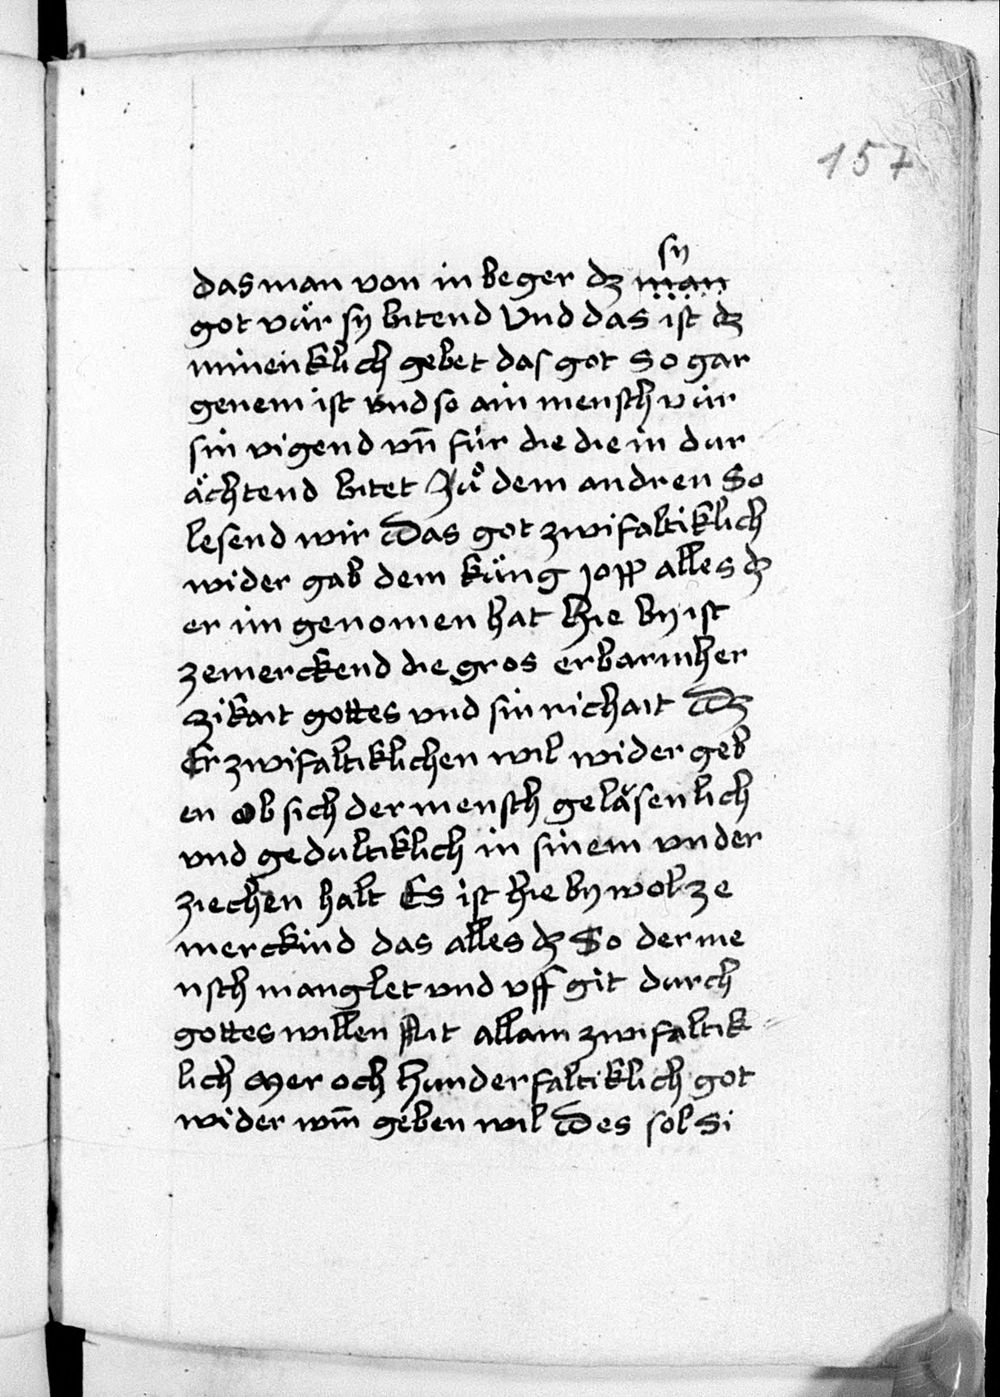 157
sy
das man von in beger dz man
got vür sÿ bitend Vnd das ist dz
minenklich gebet das got So gar
genem ist vnd so ain mensch vür
sin vigend vn̄ für die die in dur
ächtend bitet Zů dem andren So
lesend wir Das got zwifaltiklich
wider gab dem küng Jopp alles dz
er im genomen hat Hie by ist
zemerckend die gros erbarmher
zikait gottes vnd sin richait Dz
Er zwifaltiklichen wil wider geb
en ob sich der mensch geläsenlich
vnd gedultiklich in sinem vnder
ziechen halt Es ist hie by wol ze
merckind das alles dz So der me
nsch manglet vnd vff git durch
gottes willen Nit allain zwifaltik
lich Mer och Hunderfaltiklich got
wider wm̄ geben wil Des sol Si